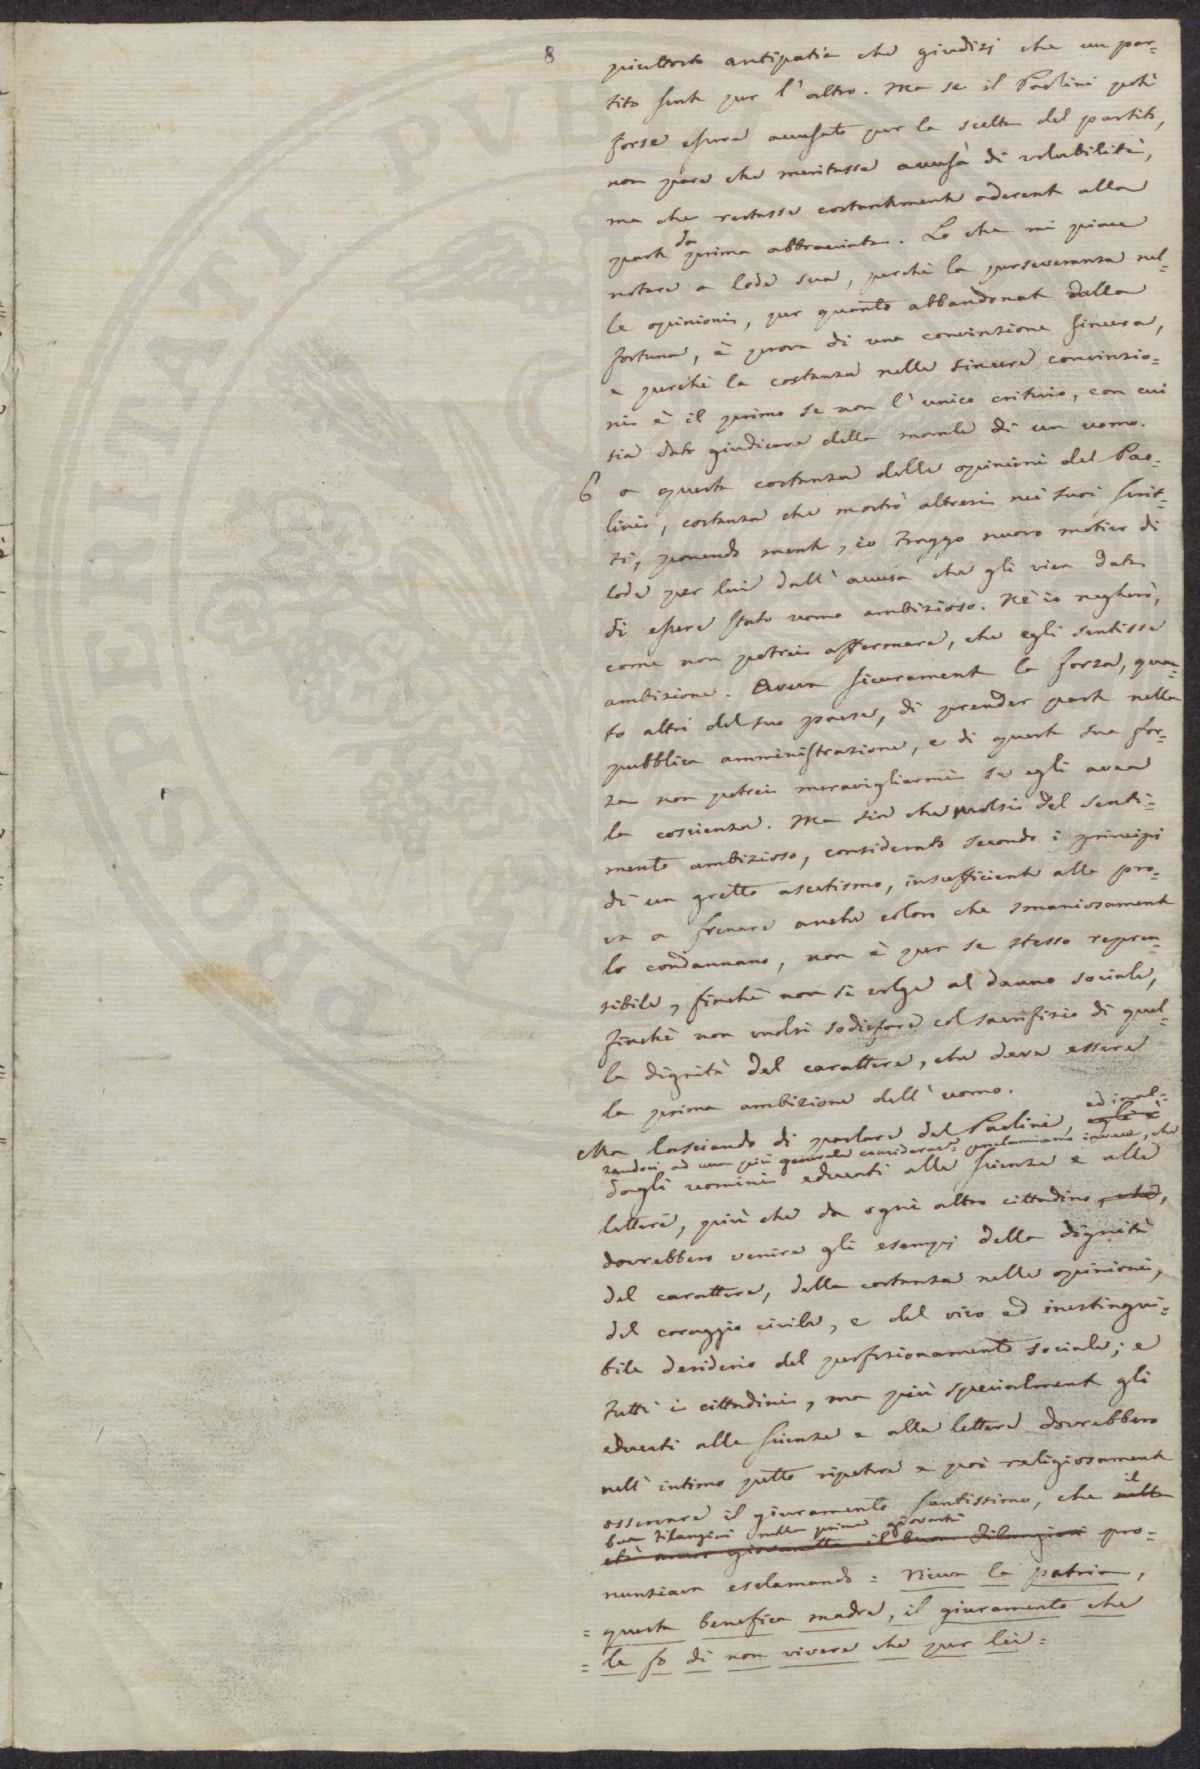 8
piuttosto antipatie che giudizj che un par=
tito sente per l'altro. Ma se il Paolini potè
forse essere accusato per la scelta del partito,
non pare che meritasse accusa di volubilità,
ma che restasse costantemente aderente alla
parte da prima abbracciata. Lo che mi piace
notare a lode sua, perchè la perseveranza nel=
le opinioni, per quanto abbandonate dalla
fortuna, è prova di una convinzione sincera,
e perchè la costanza nelle sincere convinzio=
ni è il primo se non l'unico criterio, con cui
sia dato giudicare della morale di un uomo.
E a questa costanza delle opinioni del Pao=
lini, costanza che mostrò altresì nei suoi scrit=
ti, ponendo mente, io traggo nuovo motivo di
lode per lui dall'accusa che gli vien data
di essere stato uomo ambizioso. Nè io negherò,
come non potrei affermare, che egli sentisse
ambizione. Avea sicuramente la forza, quan=
to altri del suo paese, di prender parte nella
pubblica amministrazione, e di questa sua for=
za non potrei meravigliarmi se egli avea
la coscienza. Ma sia che vuolsi del senti=
mento ambizioso, considerato secondo i principi
di un gretto ascetismo, insufficiente alla pro=
va a frenare anche coloro che smaniosamente
lo condannano, non è per se stesso repren=
sibile, finchè non si volge al danno sociale,
finchè non vuolsi sodisfare col sacrifizio di quel=
la dignità del carattere, che deve essere
la prima ambizione dell'uomo.
Ma lasciando di parlare del Paolini, ed inal=
zandoci ad una più generale considerazne proclamiamo invece, che
dagli uomini educati alle scienze e alle
lettere, più che da ogni altro cittadino, che,
dovrebbero venire gli esempj della dignità
del carattere, della costanza nelle opinioni,
del coraggio civile, e del vivo ed inestingui=
bile desiderio del perfezionamento sociale; e
tutti i cittadini, ma più specialmente gli
educati alle scienze e alle lettere dovrebbero
nell'intimo petto ripetere e poi religiosamente
osservare il giuramento santissimo, che il nella
buon Filangieri nella prima gioventù
età ancor giovanetta il buon Filangieri pro=
nunziava esclamando = Riceva la patria,
= questa benefica madre, il giuramento che
= le fo di non vivere che per lei =